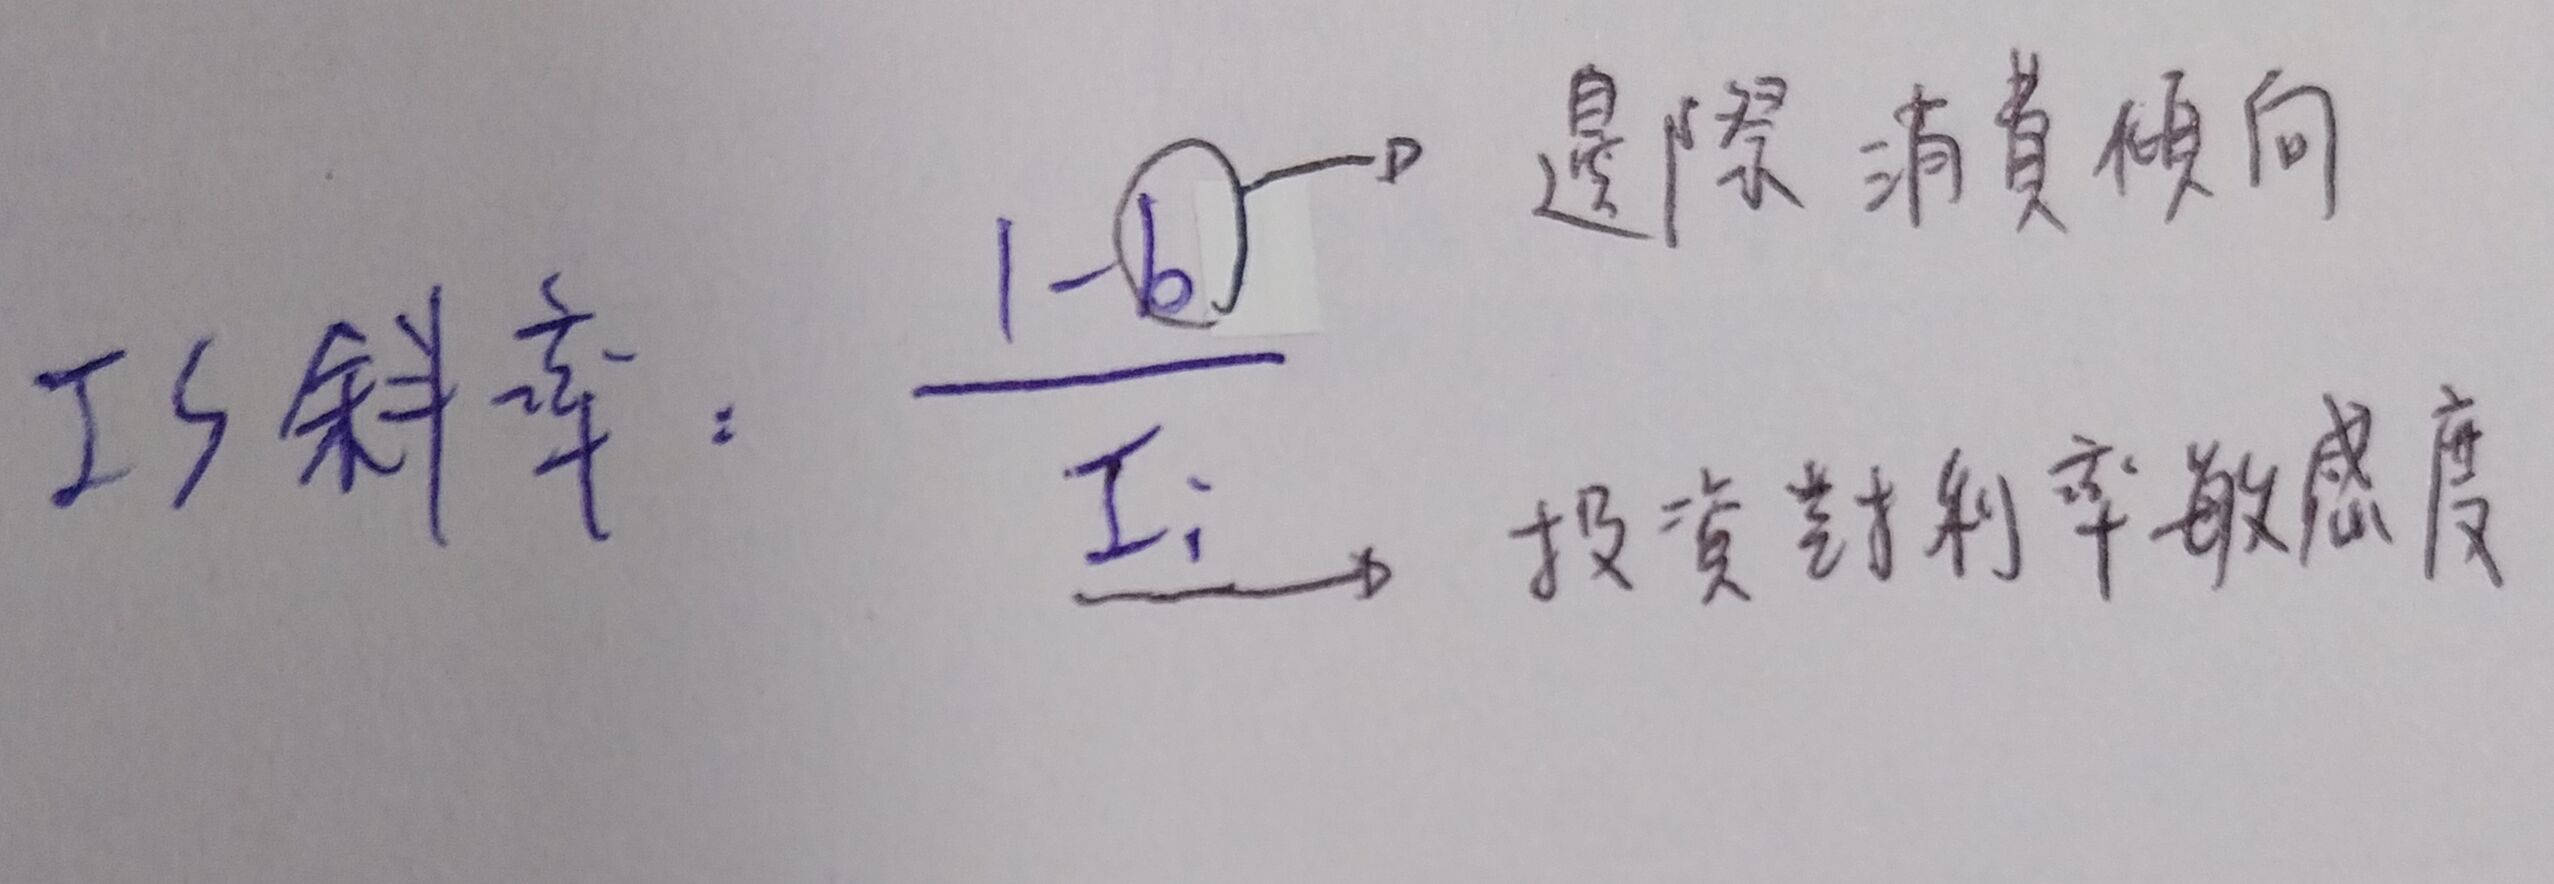 1-b → 邊際消費傾向
IS斜率：
Ii → 投資對利率敏感度